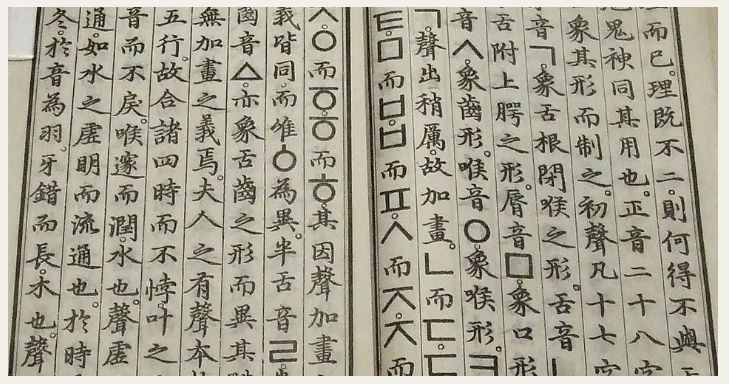 而已。理既不二。則何得不與
鬼神同其用也。正音二十八字
象其形而制之。初聲凡十七字
音ㄱ。象舌根閉喉之形。舌音
舌附上腭之形。脣音ㅁ。象口形
音ㅅ。象齒形。喉音ㅇ。象喉形。ㅋ
ㄱ。聲出稍厲。故加畫。ㄴ而ㄷ。ㄷ
ㅌ。ㅁ而ㅂ。ㅂ而ㅍ。ㅅ而ㅈ。ㅈ而
ㅇ而ㆆ。ㆆ而ㅎ。其因聲加畫
義皆同。而唯ㆁ為異。半舌音ㄹ
齒音ㅿ。亦象舌齒之形而異其
無加畫之義焉。夫人之有聲本
五行。故合諸四時而不悖。叶之
音而不戾。喉邃而潤。水也。聲虛
通。如水之虛明而流通也。於時
冬。於音為羽。牙錯而長。木也。聲